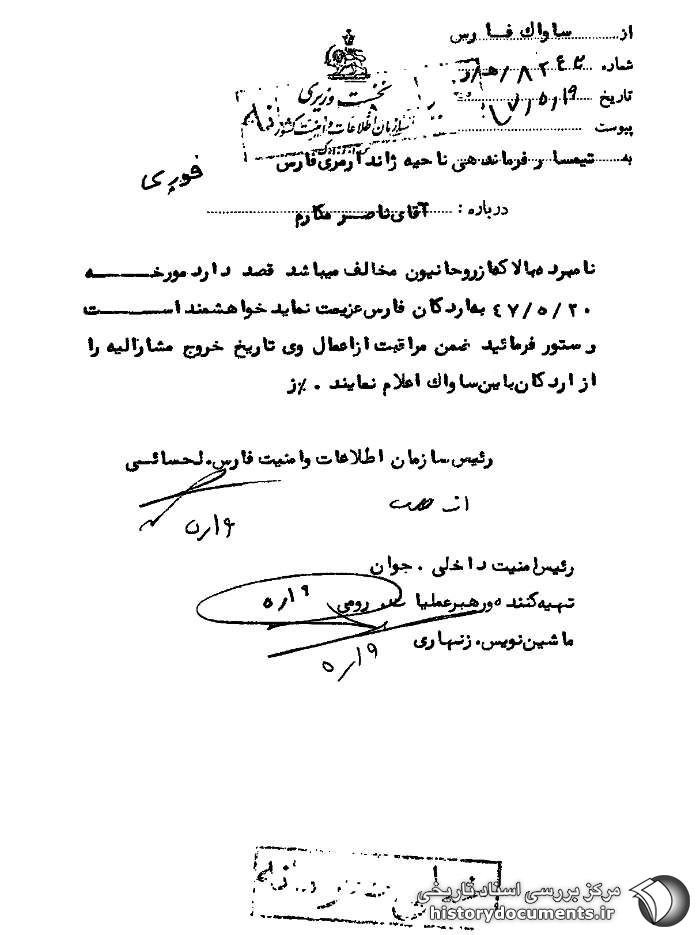 از ساواك فارس
شماره ۸۲۴۲/ ه‍/
تاریخ ۷/۵/۱۹
پیوست
نخست وزیری
سازمان اطلاعات و امنیت کشور
به تیمسار فرماندهی ناحیه ژاندارمری فارس
فوری
درباره : آقای ناصر مکارم
نامبرده بالا که از روحانیون مخالف میباشد قصد دارد مورخه
۴۷/۵/۲۰ به اردکان فارس عزیمت نماید خواهشمند است
دستور فرمائید ضمن مراقبت از اعمال وی تاریخ خروج مشارالیه را
از اردکان باین ساواك اعلام نمایند . ٪ز
رئیس سازمان اطلاعات و امنیت فارس. لحسائی
از طرف
۵/۱۹
رئیس امنیت داخلی . جوان
تهیه کننده و رهبر عملیات . رومی ۵/۱۹
ماشین نویس. زنهاری
۵/۱۹
مرکز بررسی اسناد تاریخی
historydocuments.ir